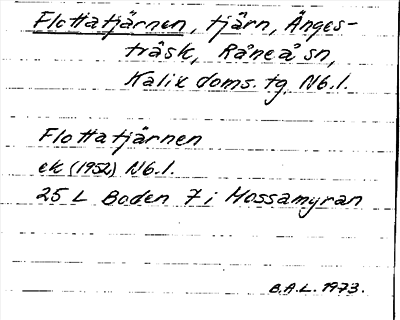 Flottatjärnen, tjärn, Änges-
träsk, Råneå sn,
Kalix doms. tg. Nb.l.
Flottatjärnen
ek (1952) Nb.l.
25 L Boden 7 i Mossamyran
B.A.L. 1973.